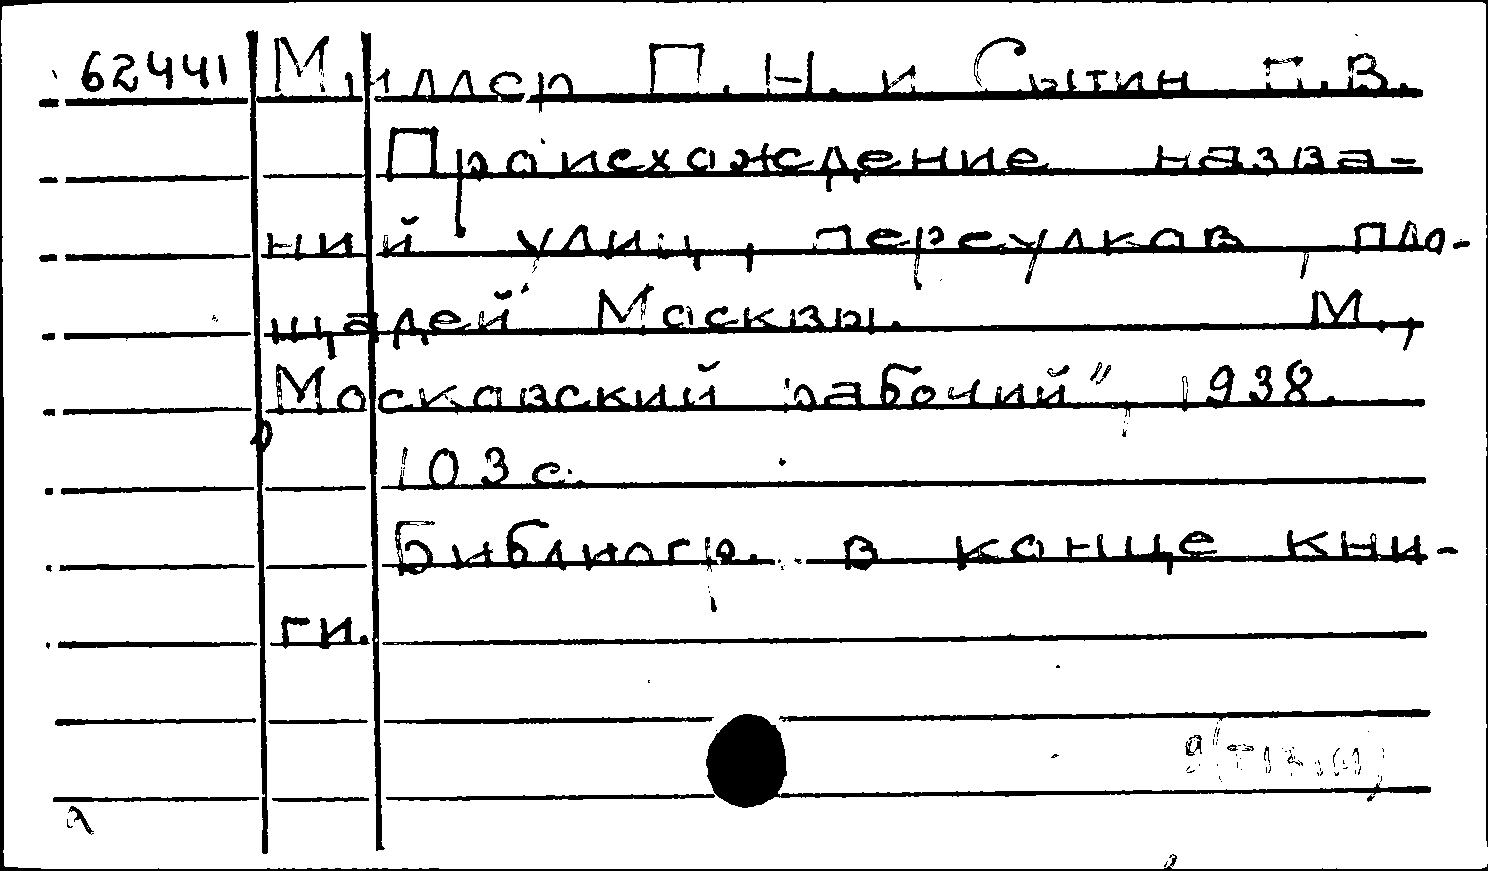 62441 Миллер П. Н. и Сытин П. В.
Происхождение назва-
ний улиц, переулков, пло-
щадей Москвы. М.,
„Московский рабочий", 1938.
103 с.
Библиогр. в конце кни-
ги.